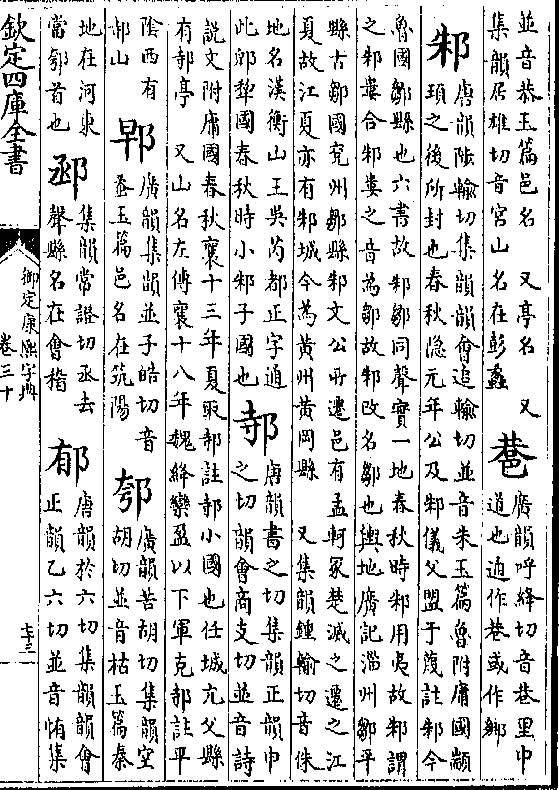 並音恭玉篇邑名 又亭名 又
集韻居雄切音宮山名在彭蠡
䢽
廣韻呼絳切音巷里中
道也通作巷或作
邾
唐韻陟輸切集韻韻會追輸切並音朱玉篇魯附庸國顓
頊之後所封也春秋隱元年公及邾儀父盟于蔑註邾今
魯國鄒縣也六書故邾鄒同聲實一地春秋時邾用夷故邾謂
之邾婁合邾婁之音為鄒故邾改名鄒也輿地廣記淄州鄒平
縣古鄒國兗州鄒縣邾文公所遷邑有孟軻冢楚滅之遷之江
夏故江夏亦有邾城今為黃州黃岡縣 又集韻鍾輸切音侏
地名漢衡山王吳芮都正字通
此邱犂國春秋時小邾子國也
邿
唐韻書之切集韻正韻巾
之切韻會商支切並音詩
說文附庸國春秋襄十三年夏取邿註邿小國也任城亢父縣
有邿亭 又山名左傳襄十八年魏絳欒盈以下軍克邿註平
陰西有
邿山
廣韻集韻並子皓切音
蚤玉篇邑名在筑陽
郀
廣韻苦胡切集韻空
胡切並音枯玉篇秦
地在河東
當郀首也
集韻常證切丞去
聲縣名在會稽
郁
唐韻於六切集韻韻會
正韻乙六切並音惐集
欽定四庫全書
御定康熙字典
卷三十
七十三